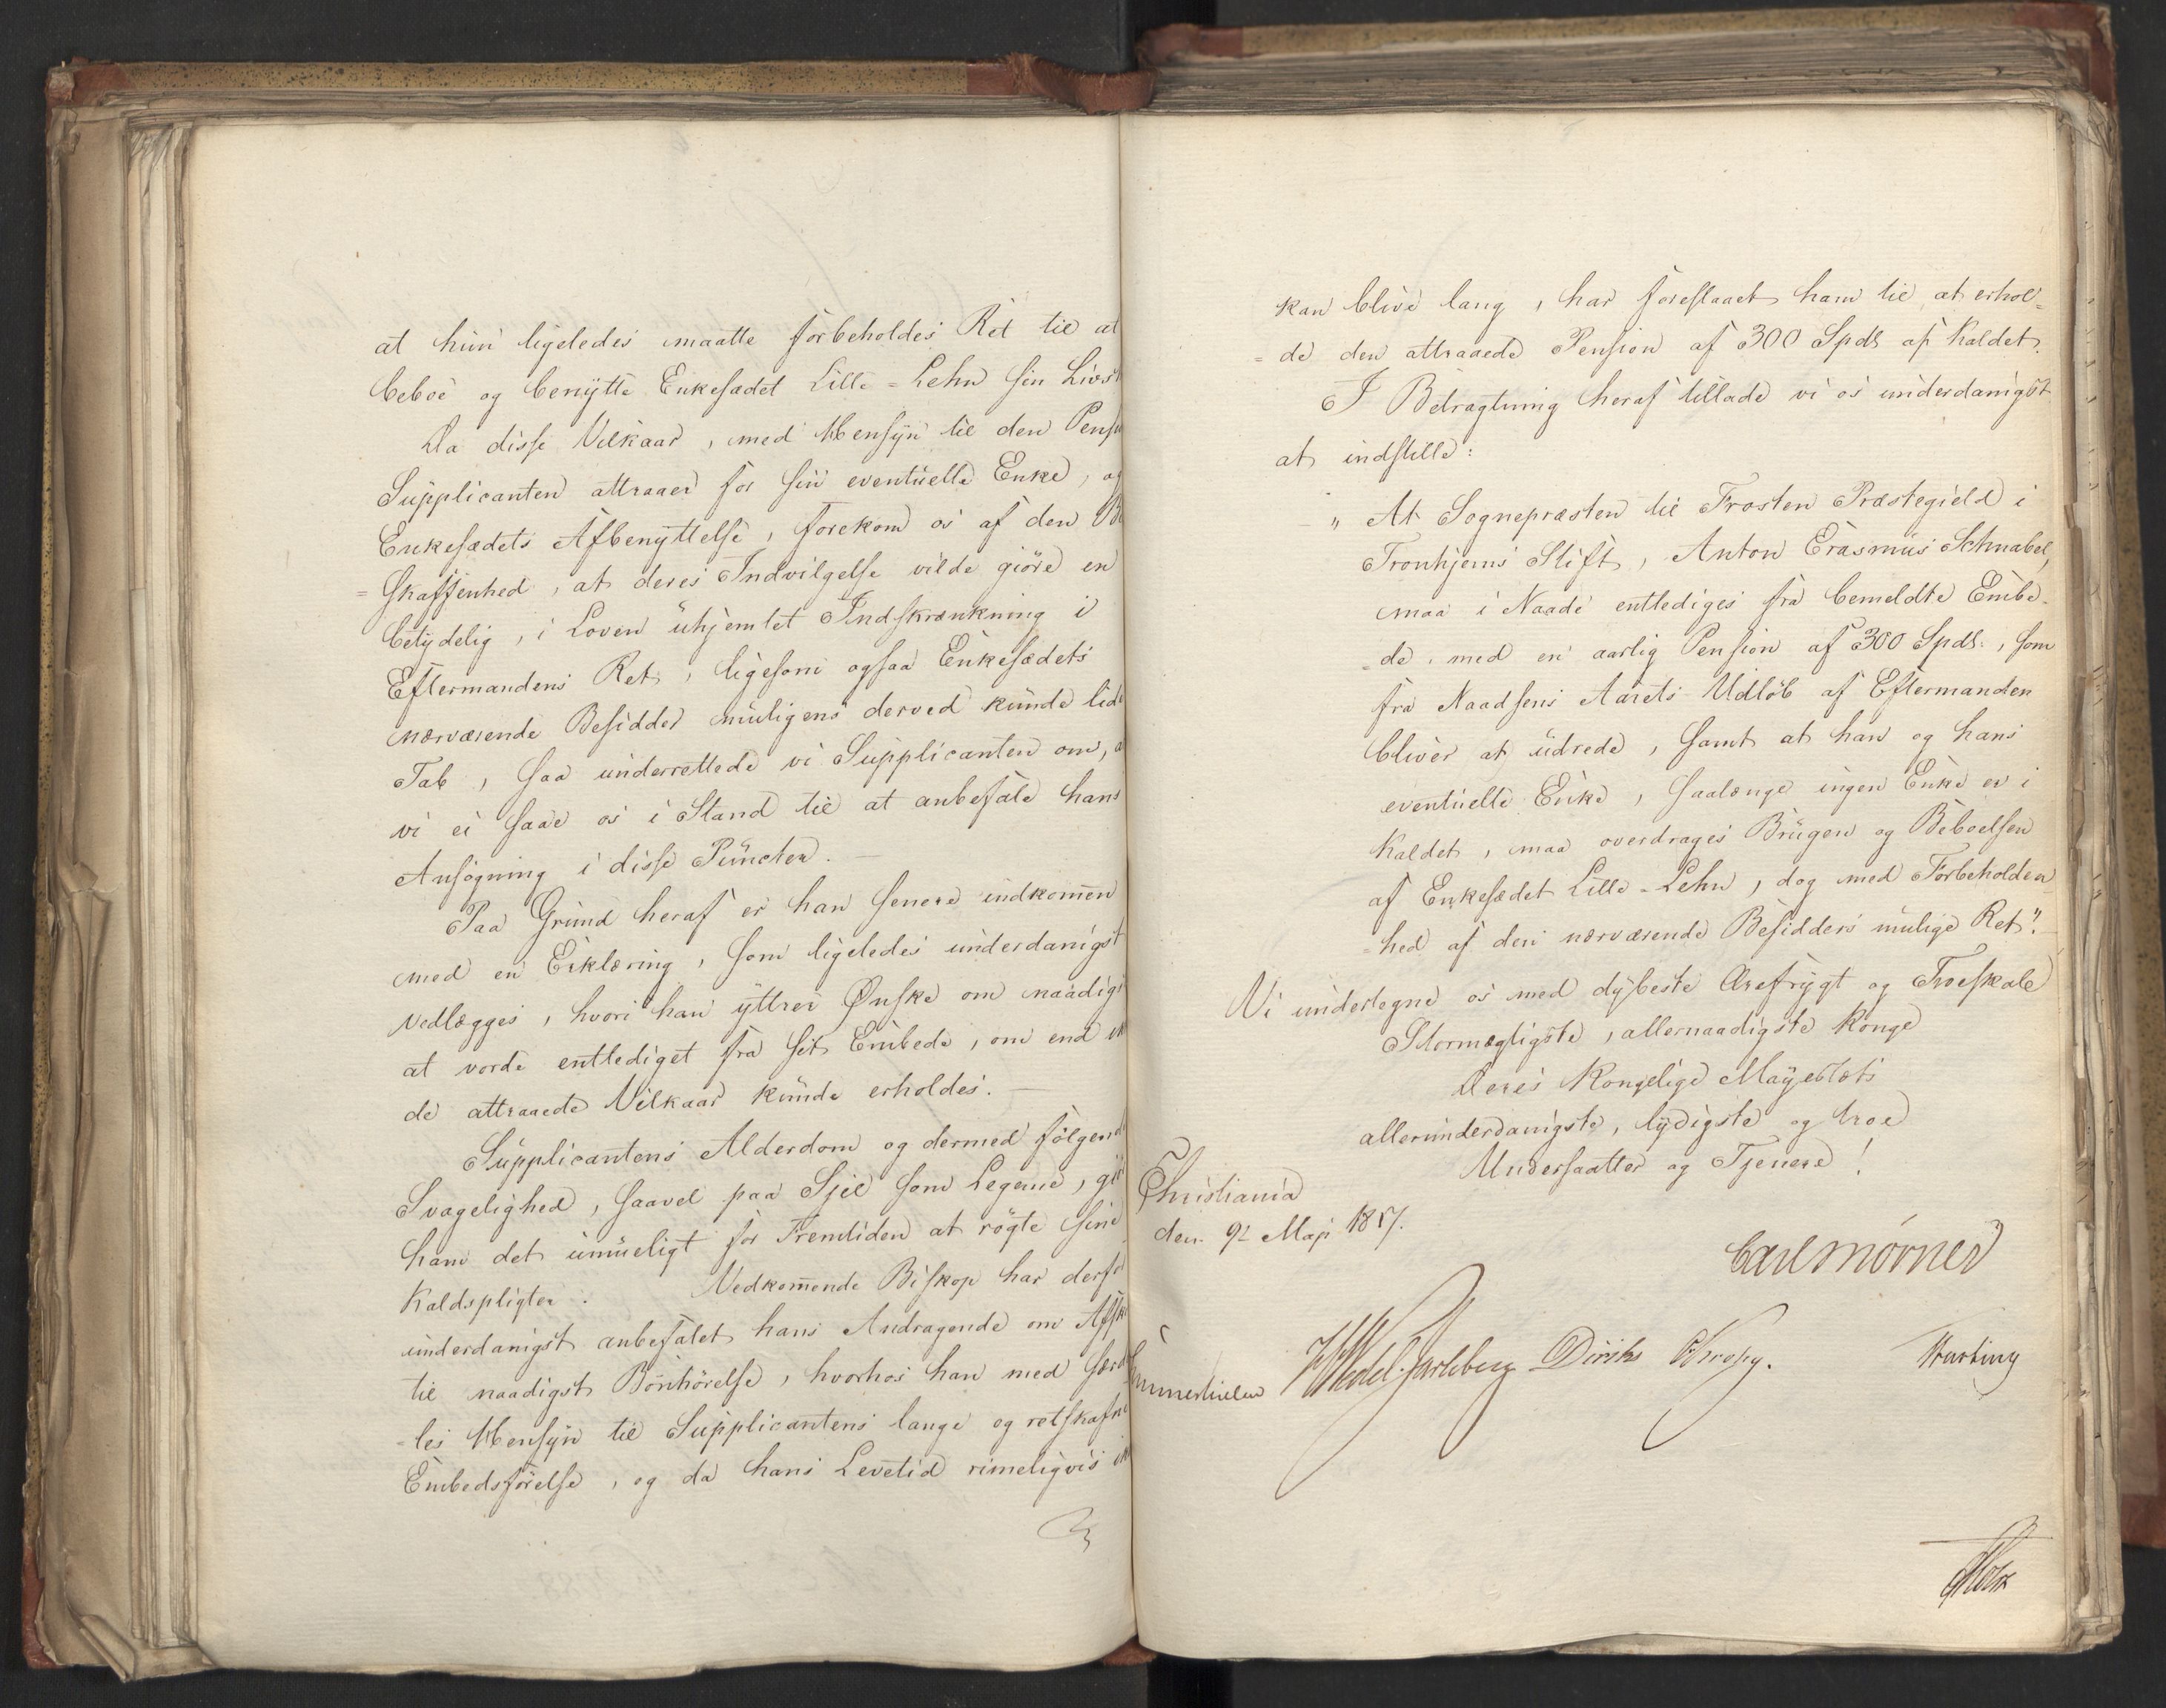 at hun ligeledes maatte forbeholdes Ret til at
beboe og benytte Enkesædet Lille-Lehn sin Livs
Da disse Vilkaar, med Hensyn til den Pens
Supplicanten attraaer for sin eventuelle Enke, og
Enkesædets Afbenyttelse, forekom os af den Be
=skaffenhed, at deres Indvilgelse vilde giöre en
betydelig, i Loven uhjemlet Indskrænkning i
Eftermandens Ret, ligesom ogsaa Enkesædets
nærværende Besidder muligens derved kunde lide
Tab, saa underrettede vi Supplicanten om, a
vi ei saae os i Stand til at anbefale hans
Ansögning i disse Puncter. —
Paa Grund heraf er han senere indkommen
med en Erklæring, som ligeledes underdanigst
vedlægges, hvori han yttrer Ønske om naadigst
at vorde entlediget fra sit Embede, om end ei
de attraaede Vilkaar kunde erholdes. —
Supplicantens Alderdom og dermed fölgende
Svagelighed, saavel paa Sjel som Legeme, giör
ham det umueligt for Fremtiden at rögte sine
Kaldspligter. Vedkommende Biskop har derfor
underdanigst anbefalet hans Andragende om Afsk
til naadigst Bönhörelse, hvorhos han med særd
=les Hensyn til Supplicantens lange og retskafne
Embedsförelse, og da hans Levetid rimeligvis ei
kan blive lang, har foreslaaet ham til at erhol=
=de den attraaede Pension af 300 Spdl af Kaldet.
I Betragtning heraf tillade vi os underdanigst
at indstille:
"At Sognepræsten til Frosten Præstegield i
Tronhjems Stift, Anton Erasmus Schnabel,
maa i Naade entlediges fra bemeldte Embe=
=de, med en aarlig Pension af 300 Spdl., som
fra Naadsens Aarets Udlöb af Eftermanden
bliver at udrede, samt at han og hans
eventuelle Enke, saalænge ingen Enke er i
Kaldet, maa overdrages Brugen og Beboelsen
af Enkesædet Lille-Lehn, dog med Forbeholden=
=hed af den nærværende Besidders mulige Ret".
Vi undertegne os med dybeste Ærefrygt og Troeskab
Stormægtigste, allernaadigste Konge
Deres Kongelige Mayestæts
allerunderdanigste, lydigste og troe
Undersaatter og Tjenere!
Christiania
den 9de Maji 1817.
Carl Mörner
Sommerhielm HWedel-Jarlsberg Diriks Krogh.
Holst